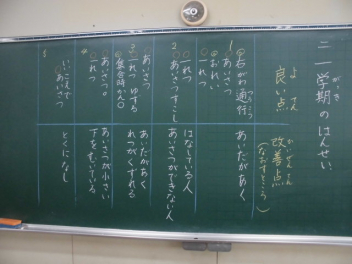 三一学期のはんせい
がっき
良い点
よ てん
改善点
かいぜん てん
(なおすところ)
1
右がわ通行
つうこう
あいさつ
おれい
一れつ
あいだがあく
2
一れつ
あいさつすこし
はなしている人
あいさつができない人
3
あいさつ
一れつ ゆずる
集合時かん〇
あいだがあく
れつがくずれる
4
あいさつ。
一れつ
あいさつが小さい
下をむいている
5
あいさつ
とくになし